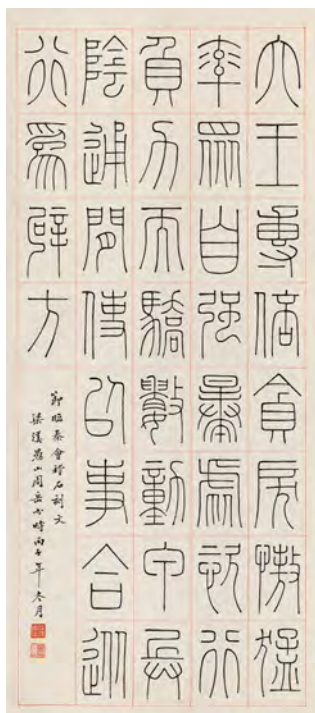 六王專倍貪戾慠猛
率眾自强暴虐恣行
負力而驕數動甲兵
陰通間使以事合從
行爲辟方
節臨秦會稽石刻文
梁溪山周岳書時丙午年冬月